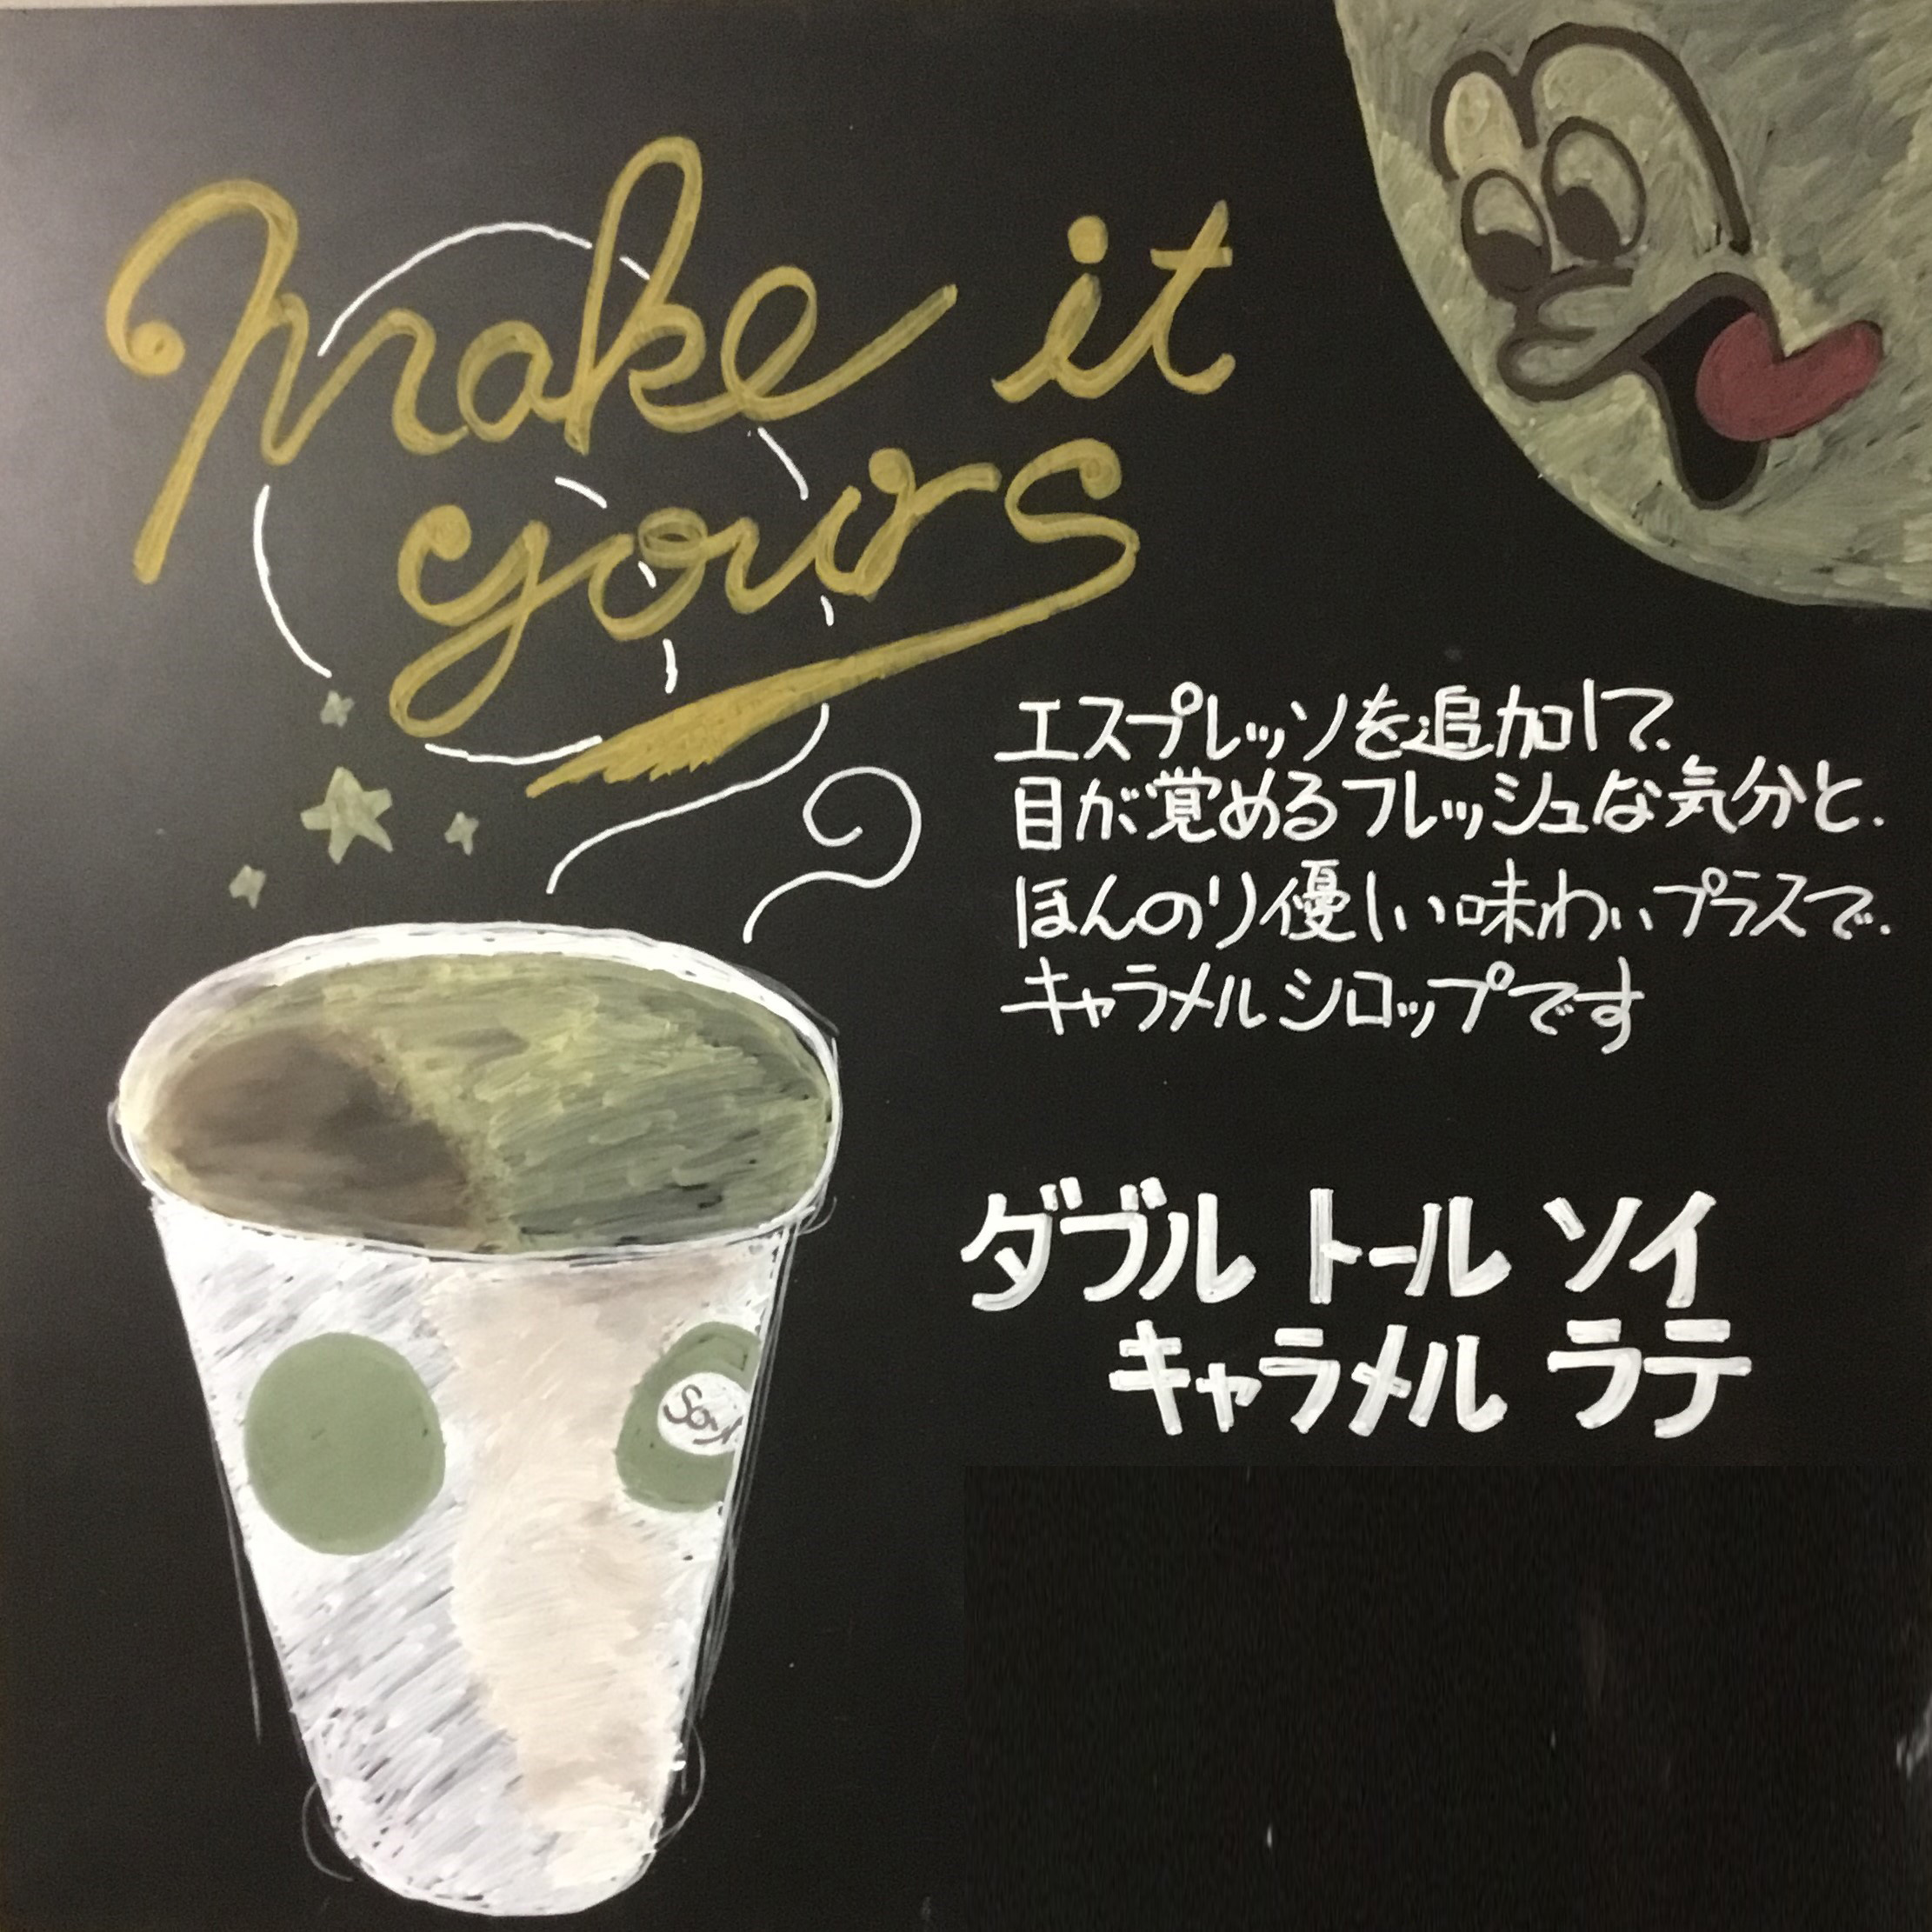 Make it
yours
エスプレッソを追加して、
目が覚めるフレッシュな気分と、
ほんのり優しい味わいプラスで、
キャラメルシロップです
ダブル トール ソイ
キャラメル ラテ
Soy